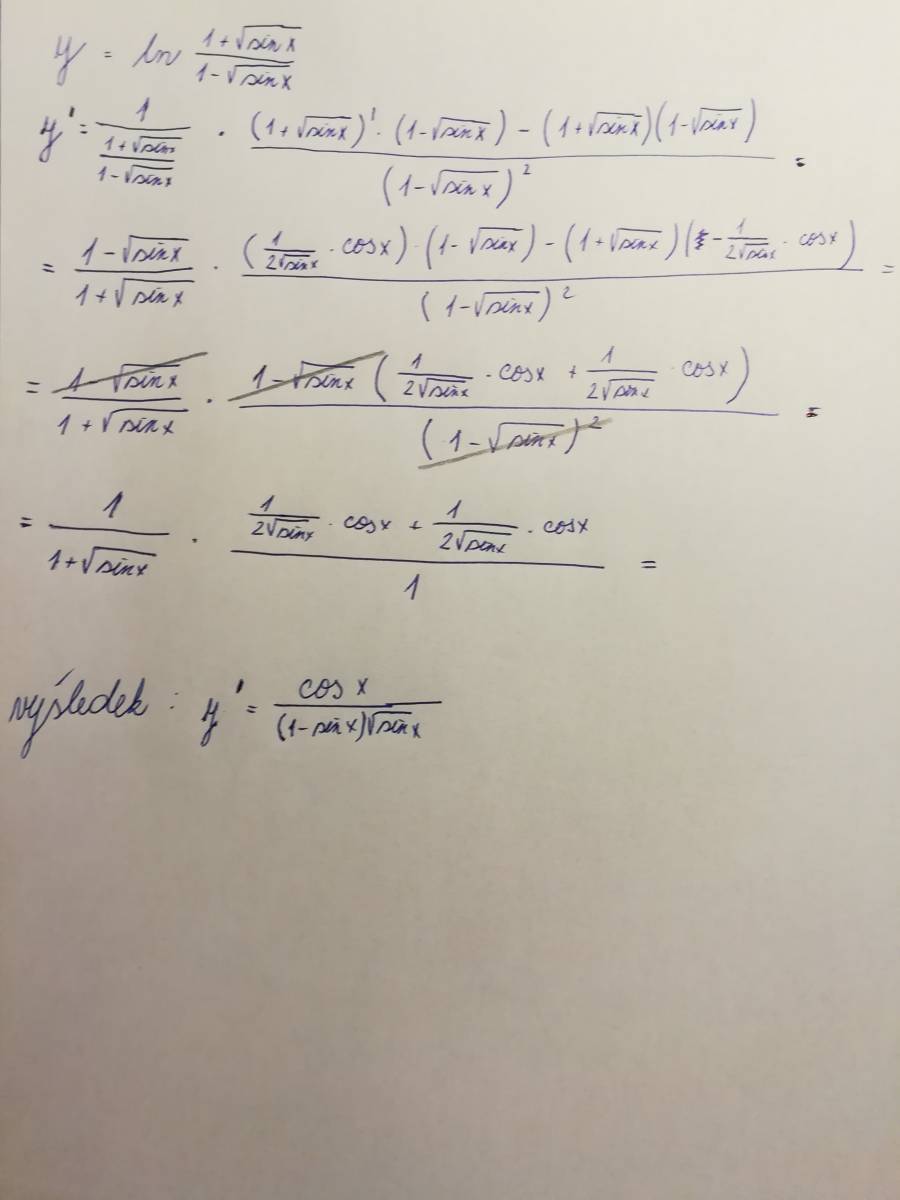 y = ln (1+√sin x)/(1-√sin x)
y' = 1/((1+√sinx)/(1-√sinx)) · ((1+√sinx)'·(1-√sinx) - (1+√sinx)(1-√sinx))/(1-√sinx)² =
= (1-√sinx)/(1+√sinx) · ((1/(2√sinx) · cosx)·(1-√sinx) - (1+√sinx)(-1/(2√sinx) · cosx))/(1-√sinx)² =
= (1-√sinx)/(1+√sinx) · (1-√sinx (1/(2√sinx) · cosx + 1/(2√sinx) · cosx))/(1-√sinx)² =
= 1/(1+√sinx) · (1/(2√sinx) · cosx + 1/(2√sinx) · cosx)/1 =
výsledek : y' = cos x/((1-sin x)√sin x)